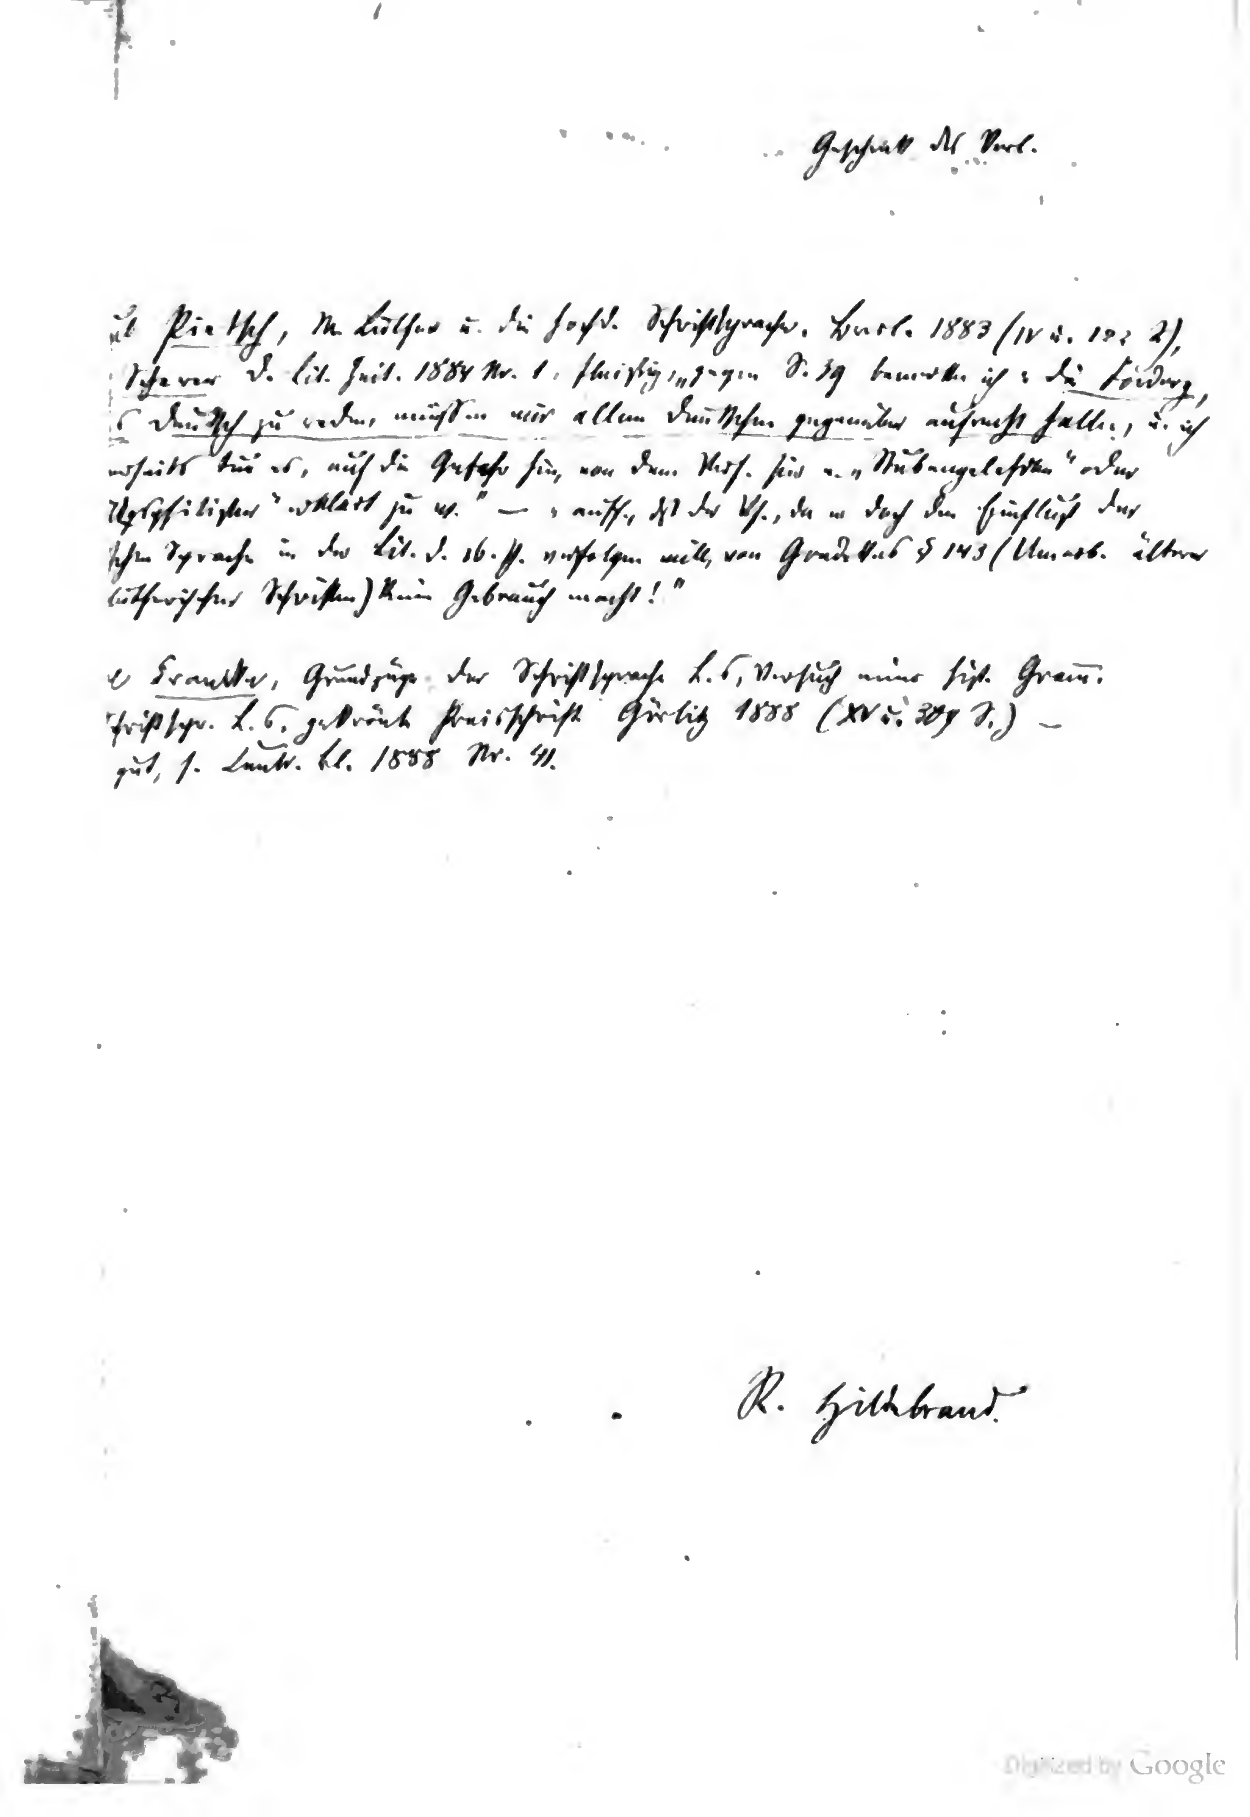 Geschenk des Verl.
Pietsch, M. Luther u. die hochd. Schriftsprache. Bresl. 1883 (IV u. 2),
Scherer D. Lit. Zeit. 1884 Nr. 1. fleißig, „gegen S. 39 bemerke ich: die Forderg,
Deutsch zu reden, müssen wir allen Deutschen gegenüber aufrecht halten, u. ich
erseits tue es, auf die Gefahr hin, von dem Verf. für e. „Stubengelehrten“ oder
erklärt zu w.“ — auff., dß der Vf., da er doch den Einfluß der
schen Sprache in der Lit. d. 16. Jh. verfolgen will, von Goedekes § 143 (Umarb. älterer
lutherischer Schriften) keinen Gebrauch macht!“
Franke, Grundzüge der Schriftsprache L.s, Versuch einer hist. Gramm.
chriftspr. L.s, gekrönte Preisschrift Görlitz 1888 (XV u. 309 S.) —
gut, s. Centr. bl. 1888 Nr. 41.
R. Hildebrand.
Digitized by Google